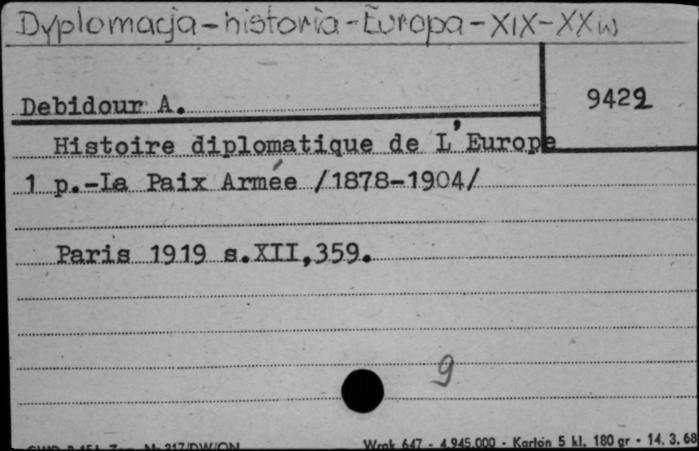 Dyplomacja-historia-Europa-XIX-XXw
9422
Debidour A.
Histoire diplomatique de L'Europe
1 p.-La Paix Armée /1878-1904/
Paris 1919 s.XII,359.
9
317/DW/ON Wrak 647 - 4.945.000 - Karton 5 kl. 180 gr - 14. 3. 68